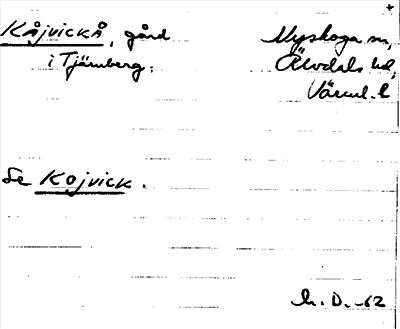 +
KÅJVICKÅ, gård Nyskoga sn,
i Tjärnberg. Älvdals hd,
Värml. l
Se KOJVICK.
h. D. -62